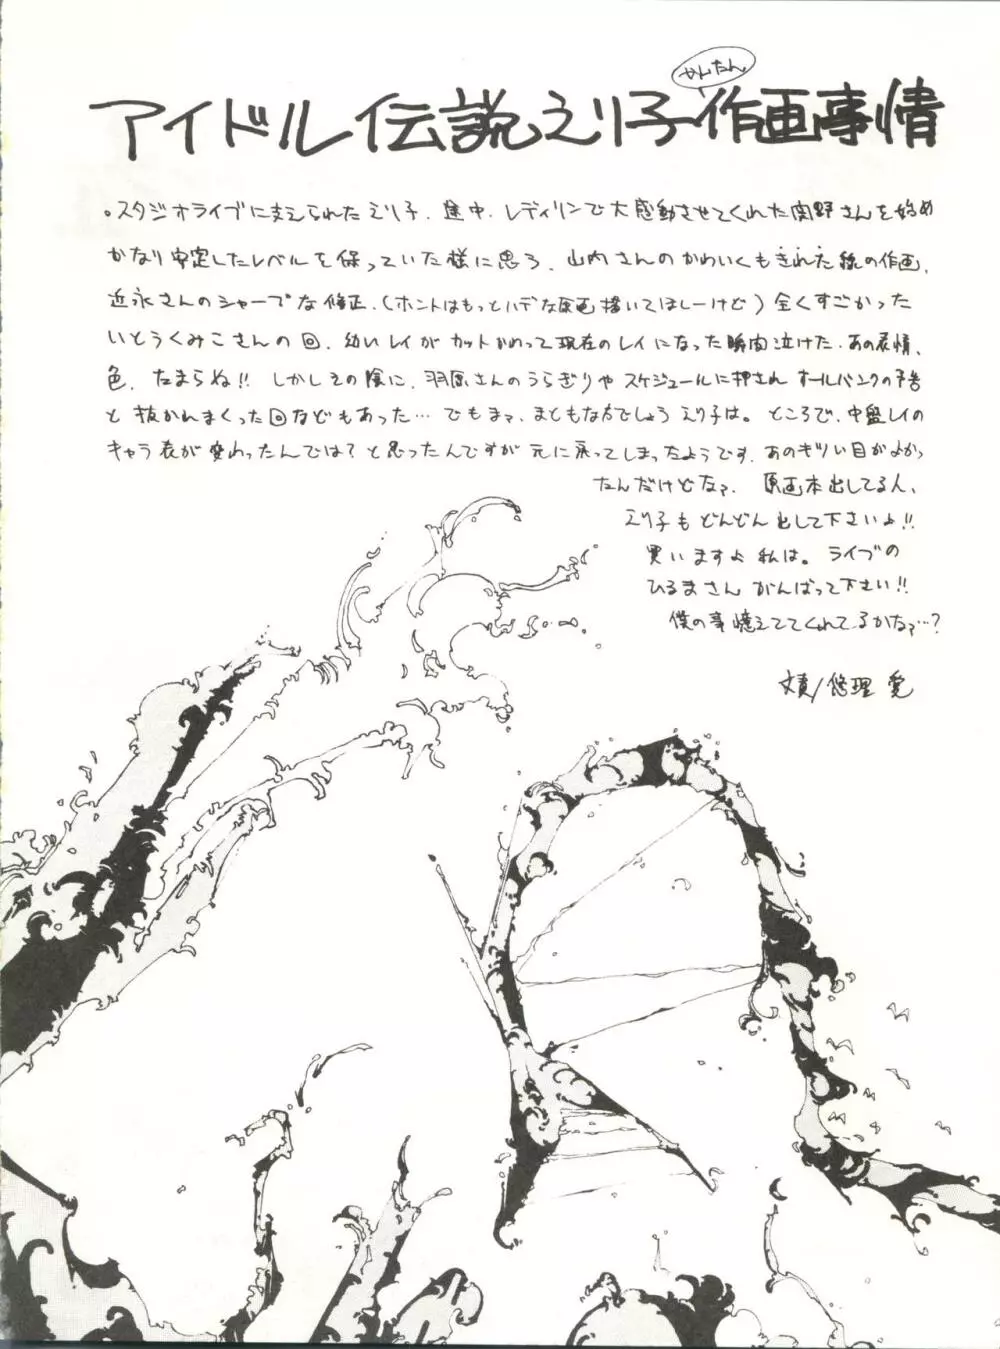 かんたん
アイドル伝説えり子作画事情
。スタジオライブに支えられたえり子、途中、レディリンで大感動させてくれた関野さんを始め
かなり安定したレベルを保っていた様に思う、山内さんのかわいくもきれた線の作画、
近永さんのシャープな修正、(ホントはもっとハデな原画描いてほしーけど)全くすごかった
いとうくみこさんの回、幼いレイがカットかわって現在のレイになった瞬間泣けた、あの表情、
色、たまらね!!しかしその陰に、羽原さんのうらぎりやスケジュールに押されオールバンクの予告
と抜かれまくった回などもあった…でもまァ、まともな方でしょうえり子は。ところで、中盤レイの
キャラ表が変わったんでは?と思ったんですが元に戻ってしまったようです、あのギリい目がよかっ
たんだけどなァ、原画本出してる人、
えり子もどんどん出して下さいよ!!
買いますよ私は。ライブの
ひるまさんがんばって下さい!!
僕の事憶えててくれてるかなァ…?
文責/悠理愛